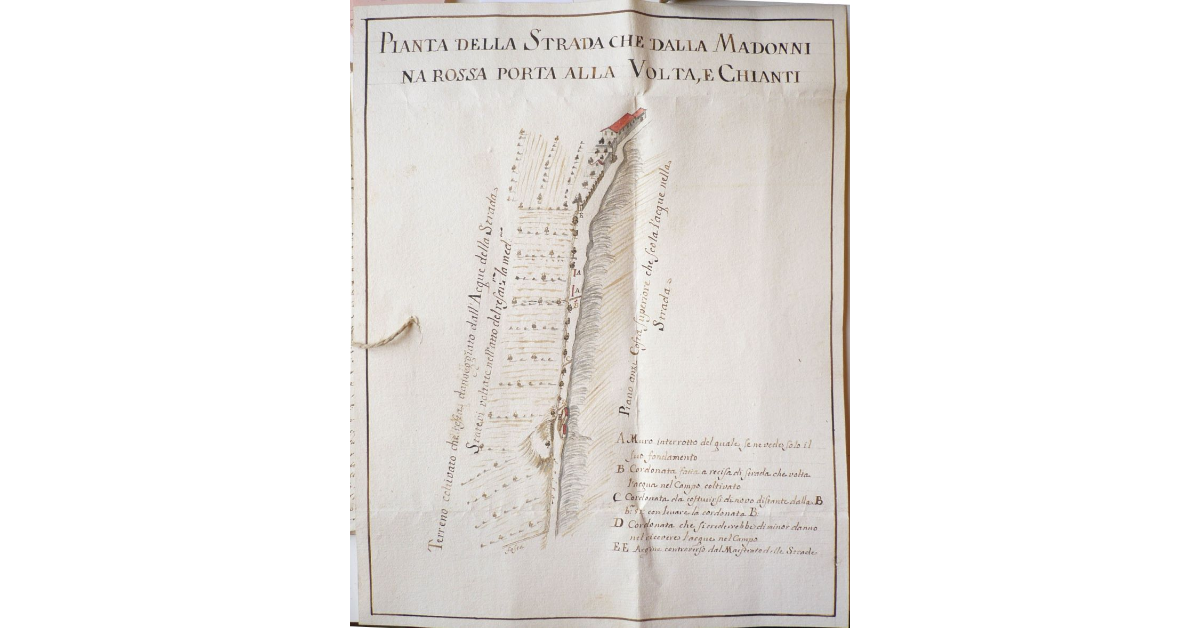 PIANTA DELLA STRADA CHE DALLA MADONNI
NA ROSSA PORTA ALLA VOLTA, E CHIANTI
Terreno coltivato che resta danneggiato dall'Acque della Strada
nell'ano del
Piano anzi Costa superiore che scola l'acque nella
Strada
A Muro interrotto del quale se ne vede solo il
suo fondamento
B Cordonata fatta a recisa di strada che volta
l'acqua nel Campo coltivato
C Cordonata da costruirsi di novo distante dalla B
con levare la cordonata B
D Cordonata che si crederebbe di minor danno
nel ricevere l'acque nel Campo
EE Acque controverse dal Magistrato delle Strade
A
A
B